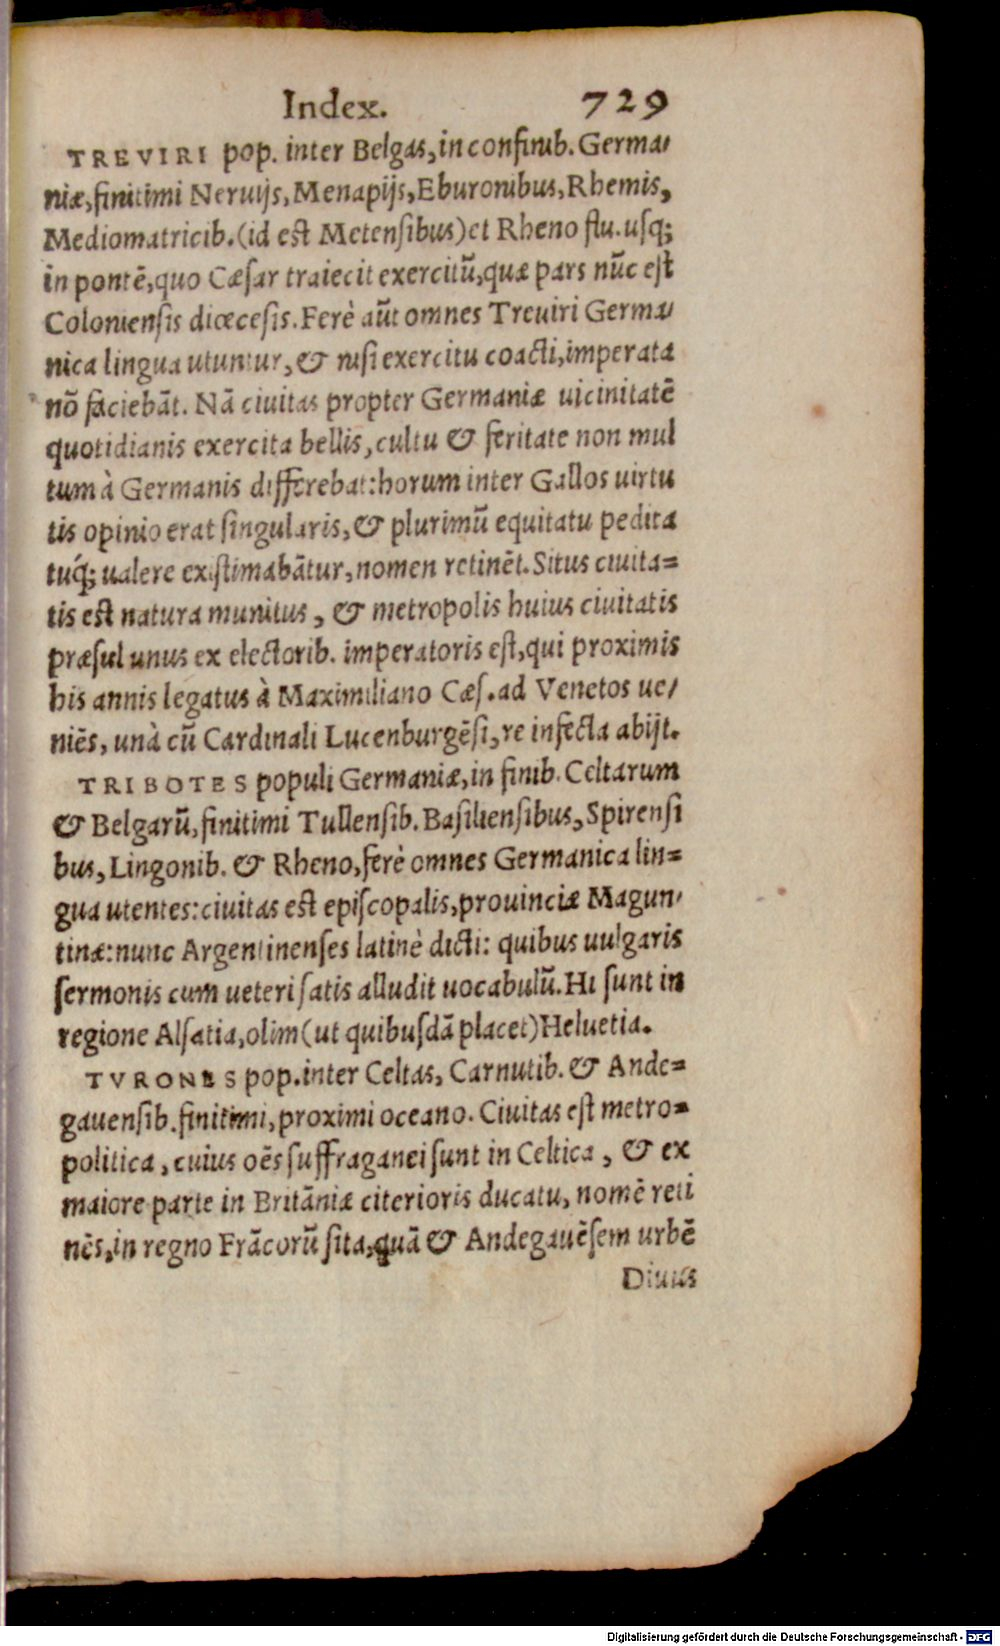 Index. 729
TREVIRI pop. inter Belgas, in confinib. Germa-
niæ, finitimi Neruijs, Menapijs, Eburonibus, Rhemis,
Mediomatricib. (id est Metensibus) et Rheno flu. usq;
in pontē, quo Cæsar traiecit exercitū, quæ pars nūc est
Coloniensis diœcesis. Ferè aūt omnes Treuiri Germa-
nica lingua utuntur, & nisi exercitu coacti, imperata
nō faciebāt. Nā ciuitas propter Germaniæ uicinitatē
quotidianis exercita bellis, cultu & feritate non mul
tum à Germanis differebat: horum inter Gallos uirtu
tis opinio erat singularis, & plurimū equitatu pedita
tuq́; ualere existimabātur, nomen retinēt. Situs ciuita=
tis est natura munitus, & metropolis huius ciuitatis
præsul unus ex electorib. imperatoris est, qui proximis
his annis legatus à Maximiliano Cæs. ad Venetos ue-
niēs, unà cū Cardinali Lucenburgēsi, re infecta abijt.
TRIBOTES populi Germaniæ, in finib. Celtarum
& Belgarū, finitimi Tullensib. Basiliensibus, Spirensi
bus, Lingonib. & Rheno, ferè omnes Germanica lin=
gua utentes: ciuitas est episcopalis, prouinciæ Magun-
tinæ: nunc Argentinenses latinè dicti: quibus uulgaris
sermonis cum ueteri satis alludit uocabulū. Hi sunt in
regione Alsatia, olim (ut quibusdā placet) Heluetia.
TVRONES pop. inter Celtas, Carnutib. & Ande=
gauensib. finitimi, proximi oceano. Ciuitas est metro=
politica, cuius oēs suffraganei sunt in Celtica, & ex
maiore parte in Britāniæ citerioris ducatu, nomē reti
nēs, in regno Frācorū sita, quā & Andegauēsem urbē
Diuus
Digitalisierung gefördert durch die Deutsche Forschungsgemeinschaft - DFG